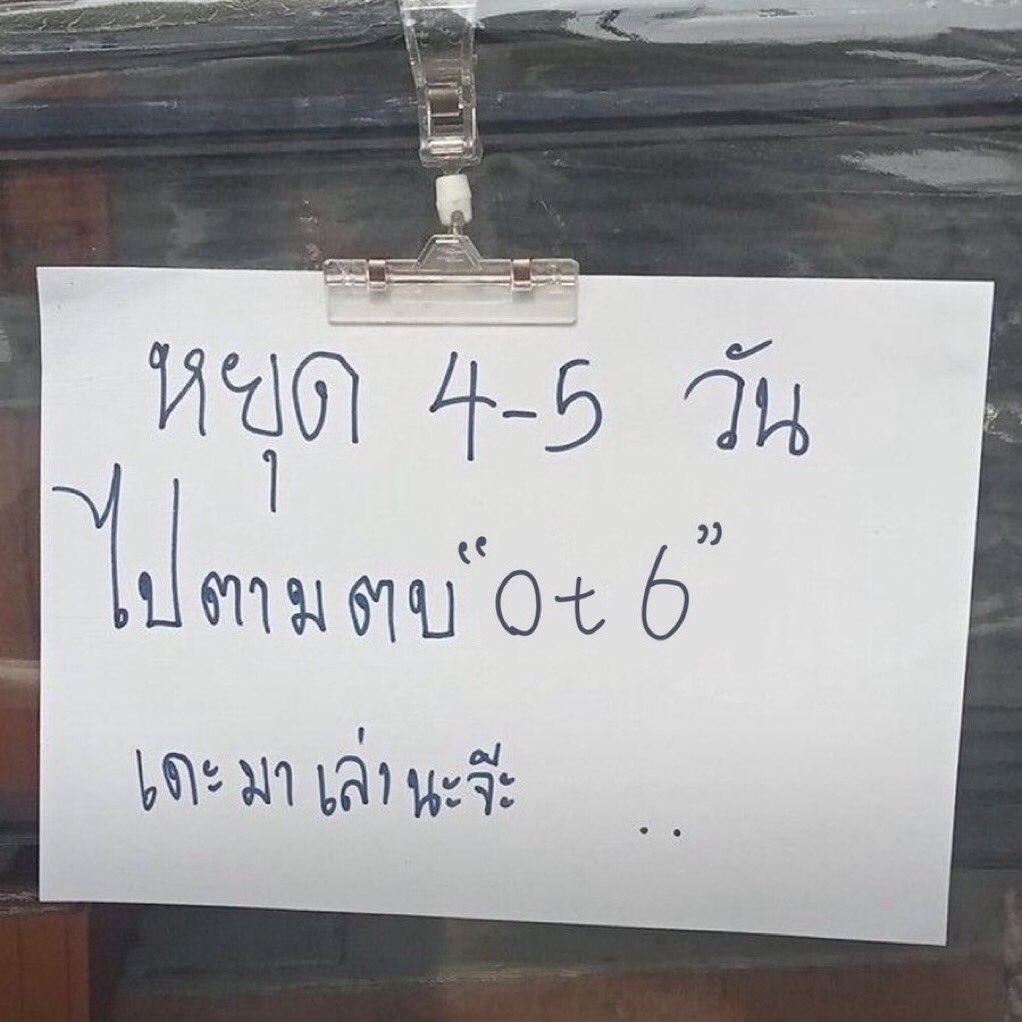 หยุด 4-5 วัน
ไปตามตบ "0t6"
เดะมาเล่านะจีะ ..